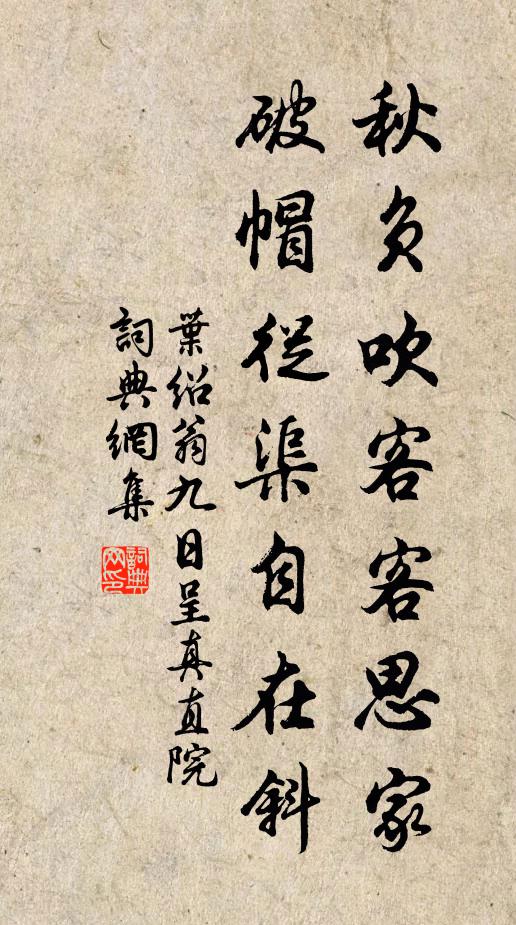 秋風吹客客思家
破帽從渠自在斜
葉紹翁九日呈真直院
詞典網集
詞典
网印